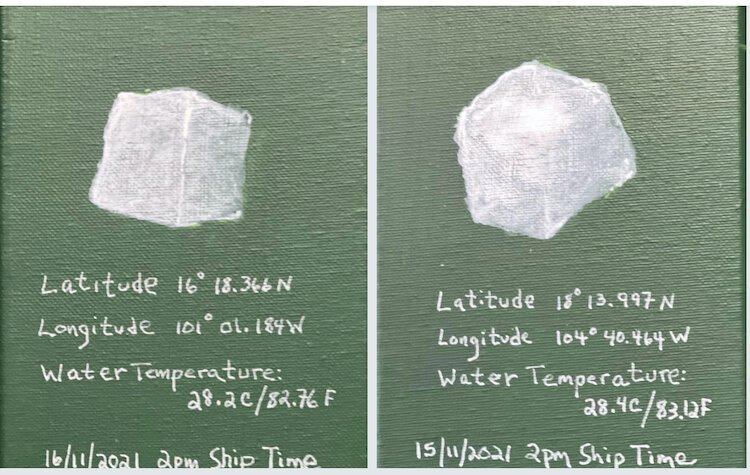 Latitude 16° 18.366 N
Longitude 101° 01.184W
Water Temperature:
28.2C/82.76 F
16/11/2021 2pm Ship Time
Latitude 18° 13.997 N
Longitude 104° 40.464 W
Water Temperature:
28.4C/83.12F
15/11/2021 2pm Ship Time